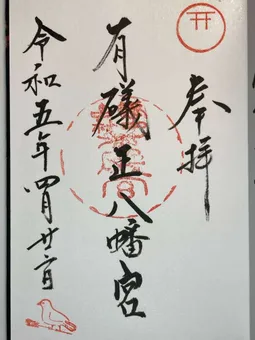 奉拝
有磯正八幡宮
令和五年四月廿二日